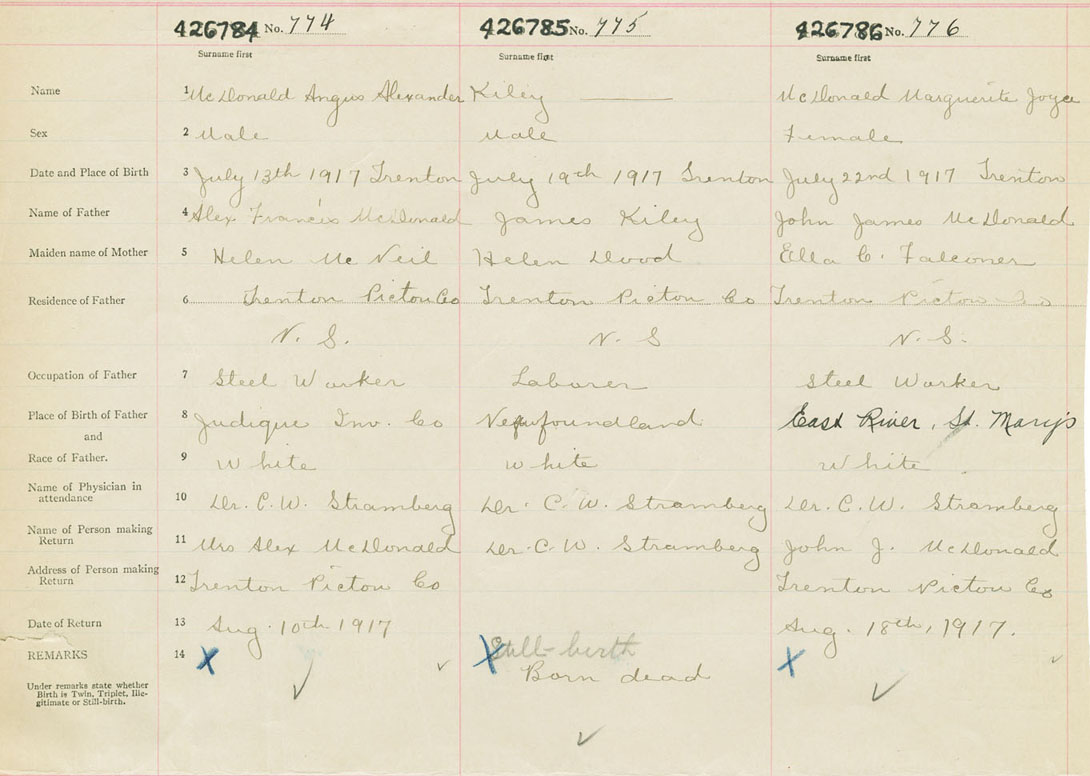 426784 No. 774 426785 No. 775 426786 No. 776
Surname first Surname first Surname first
Name 1 McDonald Angus Alexander Kiley —— McDonald Marguerite Joyce
Sex 2 Male Male Female
Date and Place of Birth 3 July 13th 1917 Trenton July 19th 1917 Trenton July 22nd 1917 Trenton
Name of Father 4 Alex Francis McDonald James Kiley John James McDonald
Maiden name of Mother 5 Helen McNeil Helen Wood Ella C. Falconer
Residence of Father 6 Trenton Pictou Co Trenton Pictou Co Trenton Pictou Co
N. S. N. S N. S.
Occupation of Father 7 Steel Worker Laborer Steel Worker
Place of Birth of Father 8 Judique Inv. Co Newfoundland East River, St. Mary's
and
Race of Father. 9 White White White
Name of Physician in
attendance 10 Dr. C. W. Stramberg Dr. C. W. Stramberg Dr. C. W. Stramberg
Name of Person making
Return 11 Mrs Alex McDonald Dr. C. W. Stramberg John J. McDonald
Address of Person making
Return 12 Trenton Pictou Co Trenton Pictou Co
Date of Return 13 Aug. 10th 1917 Aug. 18th, 1917.
REMARKS 14 X X Still-birth X
Born dead
Under remarks state whether
Birth is Twin, Triplet, Ille-
gitimate or Still-birth.